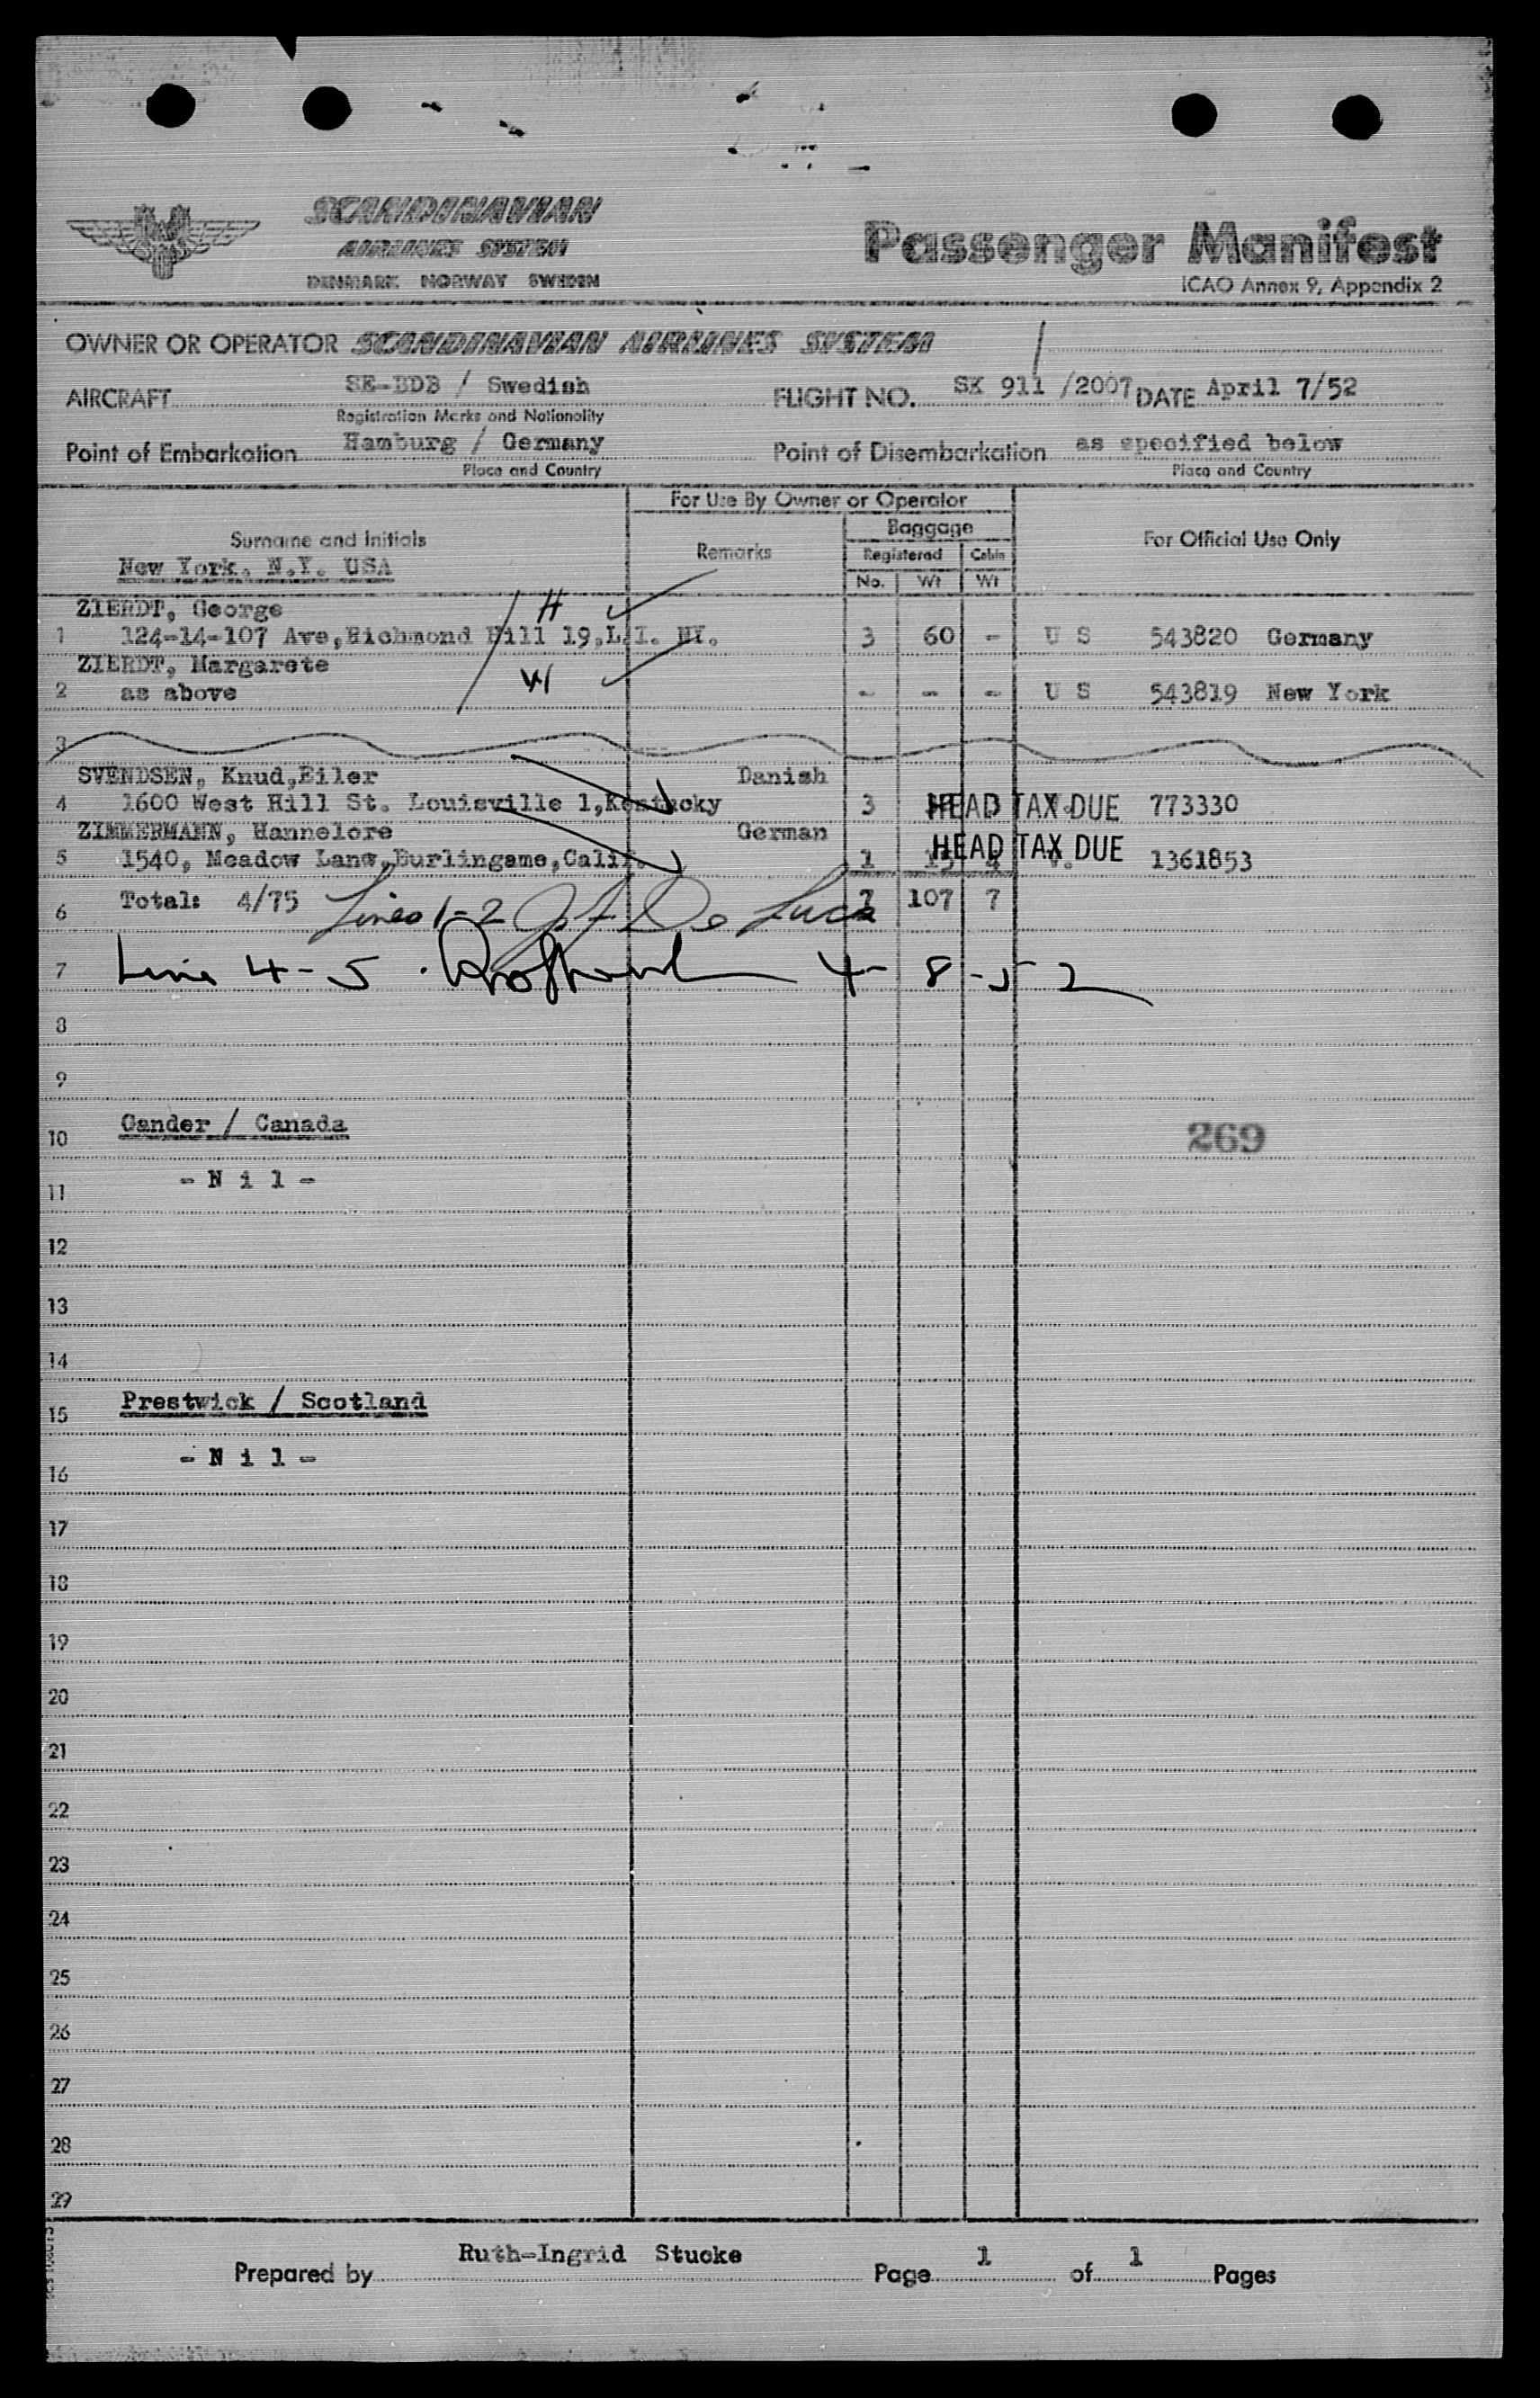 SCANDINAVIAN
AIRLINES SYSTEM
DENMARK NORWAY SWEDEN
Passenger Manifest
ICAO Annex 9, Appendix 2
OWNER OR OPERATOR SCANDINAVIAN AIRLINES SYSTEM
AIRCRAFT SE-BDB / Swedish FLIGHT NO. SK 911 /2007 DATE April 7/52
Registration Marks and Nationality
Point of Embarkation Hamburg / Germany Point of Disembarkation as specified below
Place and Country Place and Country
For Use By Owner or Operator
Baggage
Surname and Initials Remarks Registered Cabin For Official Use Only
New York, N.Y. USA No. Wt Wt
ZIERDT, George H
1 124-14-107 Ave,Richmond Hill 19,L.I. NY. 3 60 - U S 543820 Germany
ZIERDT, Margarete
2 as above W - - - U S 543819 New York
3
SVENDSEN, Knud,Eiler Danish
4 1600 West Hill St. Louisville 1,Kentucky 3 3 HEAD TAX DUE 773330
ZIMMERMANN, Hannelore German
5 1540, Meadow Lane,Burlingame,Calif. 1 15 4 HEAD TAX DUE 1361853
6 Total: 4/75 Lines 1-2 De Luca 7 107 7
7 Line 4-5 4-8-52
8
9
10 Gander / Canada 269
11 - N i l -
12
13
14
15 Prestwick / Scotland
16 - N i l -
17
18
19
20
21
22
23
24
25
26
27
28
29
Prepared by Ruth-Ingrid Stucke Page 1 of 1 Pages